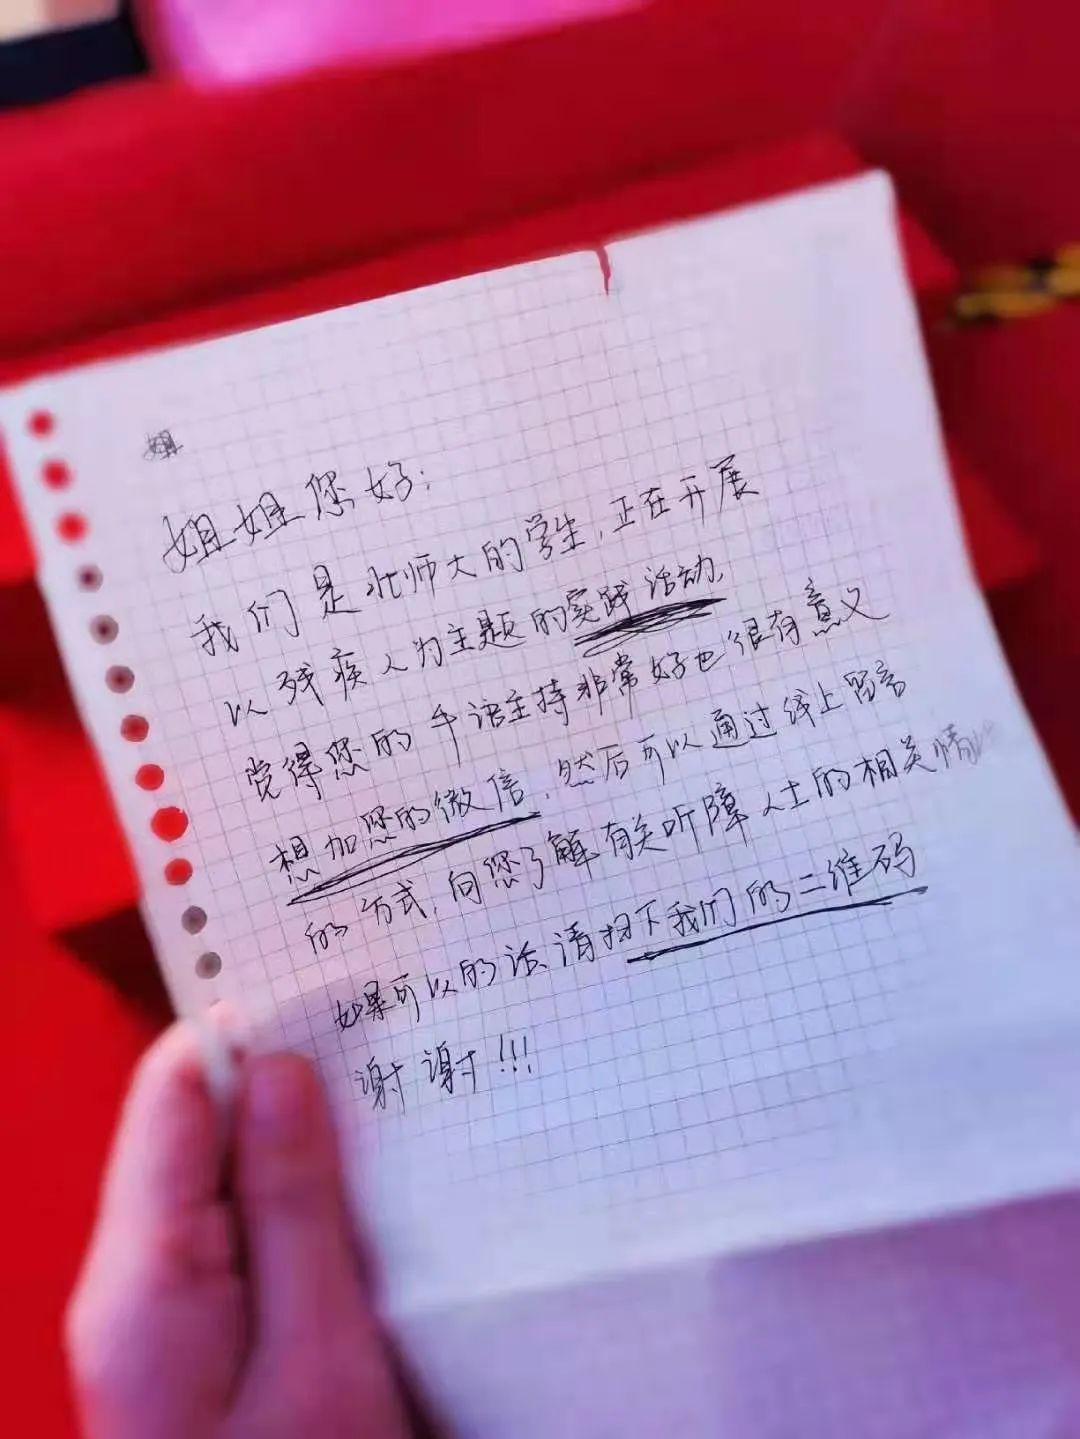 姐
姐姐您好：
我们是北师大的学生，正在开展
以残疾人为主题的实践活动，
觉得您的手语主持非常好也很有意义
想加您的微信，然后可以通过线上留言
的方式，向您了解有关听障人士的相关情
如果可以的话，请扫下我们的二维码
谢谢！！！